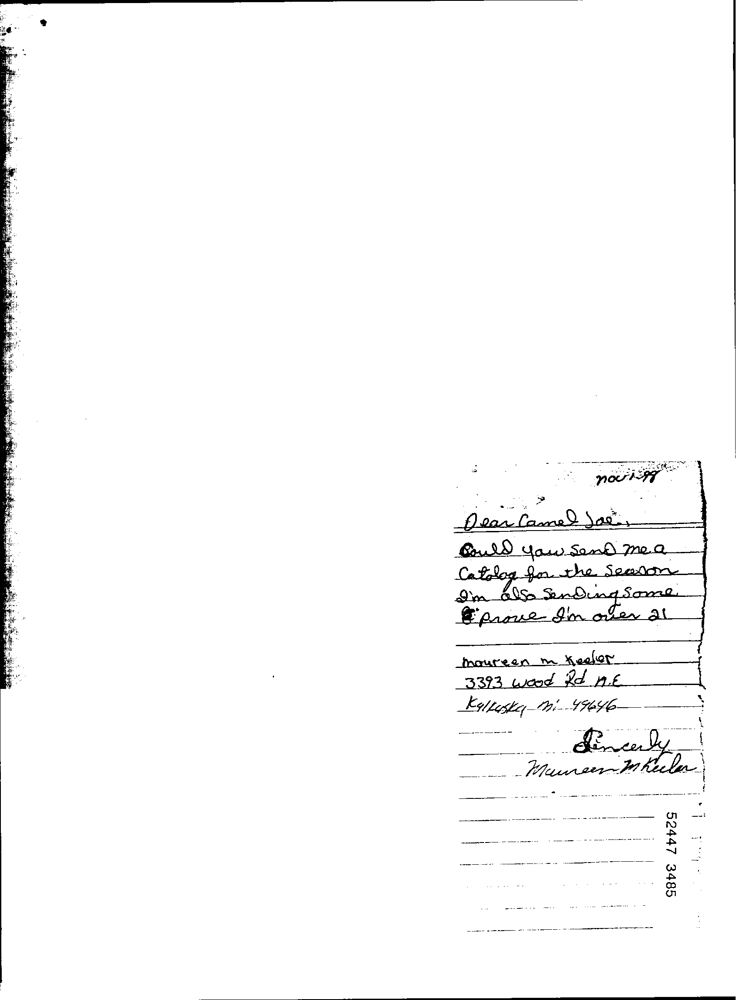 Nov 1-99
Dear Camel Joe,
Could yaw send me a
Catolog for the Season
I'm also Sending Some
prove I'm over 21
Maureen M Keeler
3393 Wood Rd N.E
Kalkaska Mi 49646
Sincerly
Maureen M Keeler
52447 3485